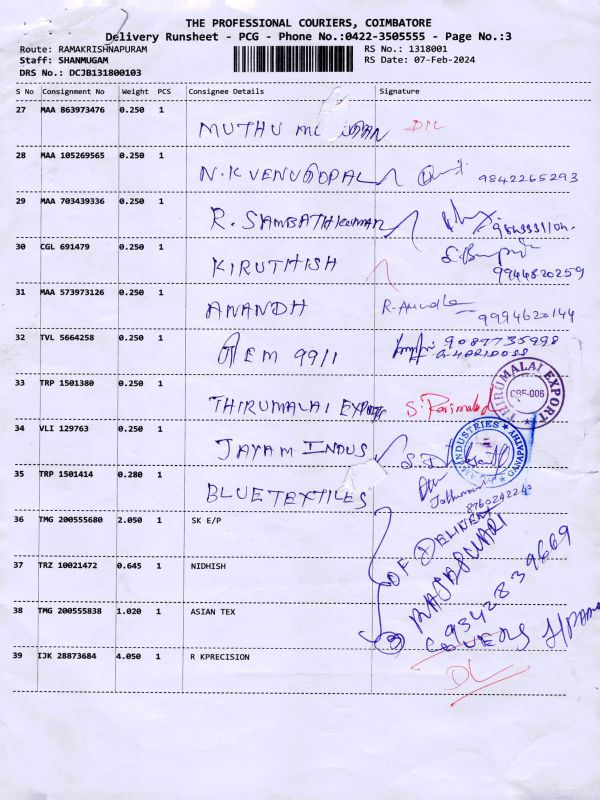 THE PROFESSIONAL COURIERS, COIMBATORE
Delivery Runsheet - PCG - Phone No.:0422-3505555 - Page No.:3
Route: RAMAKRISHNAPURAM RS No.: 1318001
Staff: SHANMUGAM RS Date: 07-Feb-2024
DRS No.: DCJB131800103
S No Consignment No Weight PCS Consignee Details Signature
27 MAA 863973476 0.250 1
MUTHU
28 MAA 105269565 0.250 1
N.K VENUGOPAL 9842265293
29 MAA 703439336 0.250 1
R. SAMBATHKUMAR
30 CGL 691479 0.250 1
KIRUTHISH 9944820259
31 MAA 573973126 0.250 1
ANANDH 9994620144
32 TVL 5664258 0.250 1
99/1 9087735998
33 TRP 1501380 0.250 1
THIRUMALAI EXPORTS
THIRUMALAI EXPORT
CBE-006
34 VLI 129763 0.250 1
JAYAM INDUS
INDUSTRIES
35 TRP 1501414 0.280 1
BLUE TEXTILES
8760242240
36 TMG 200555680 2.050 1 SK E/P
OF DELIVERY
RAJESWARI
37 TRZ 10021472 0.645 1 NIDHISH
9342839669
38 TMG 200555838 1.020 1 ASIAN TEX
COVERS
39 IJK 28873684 4.050 1 R KPRECISION
DL